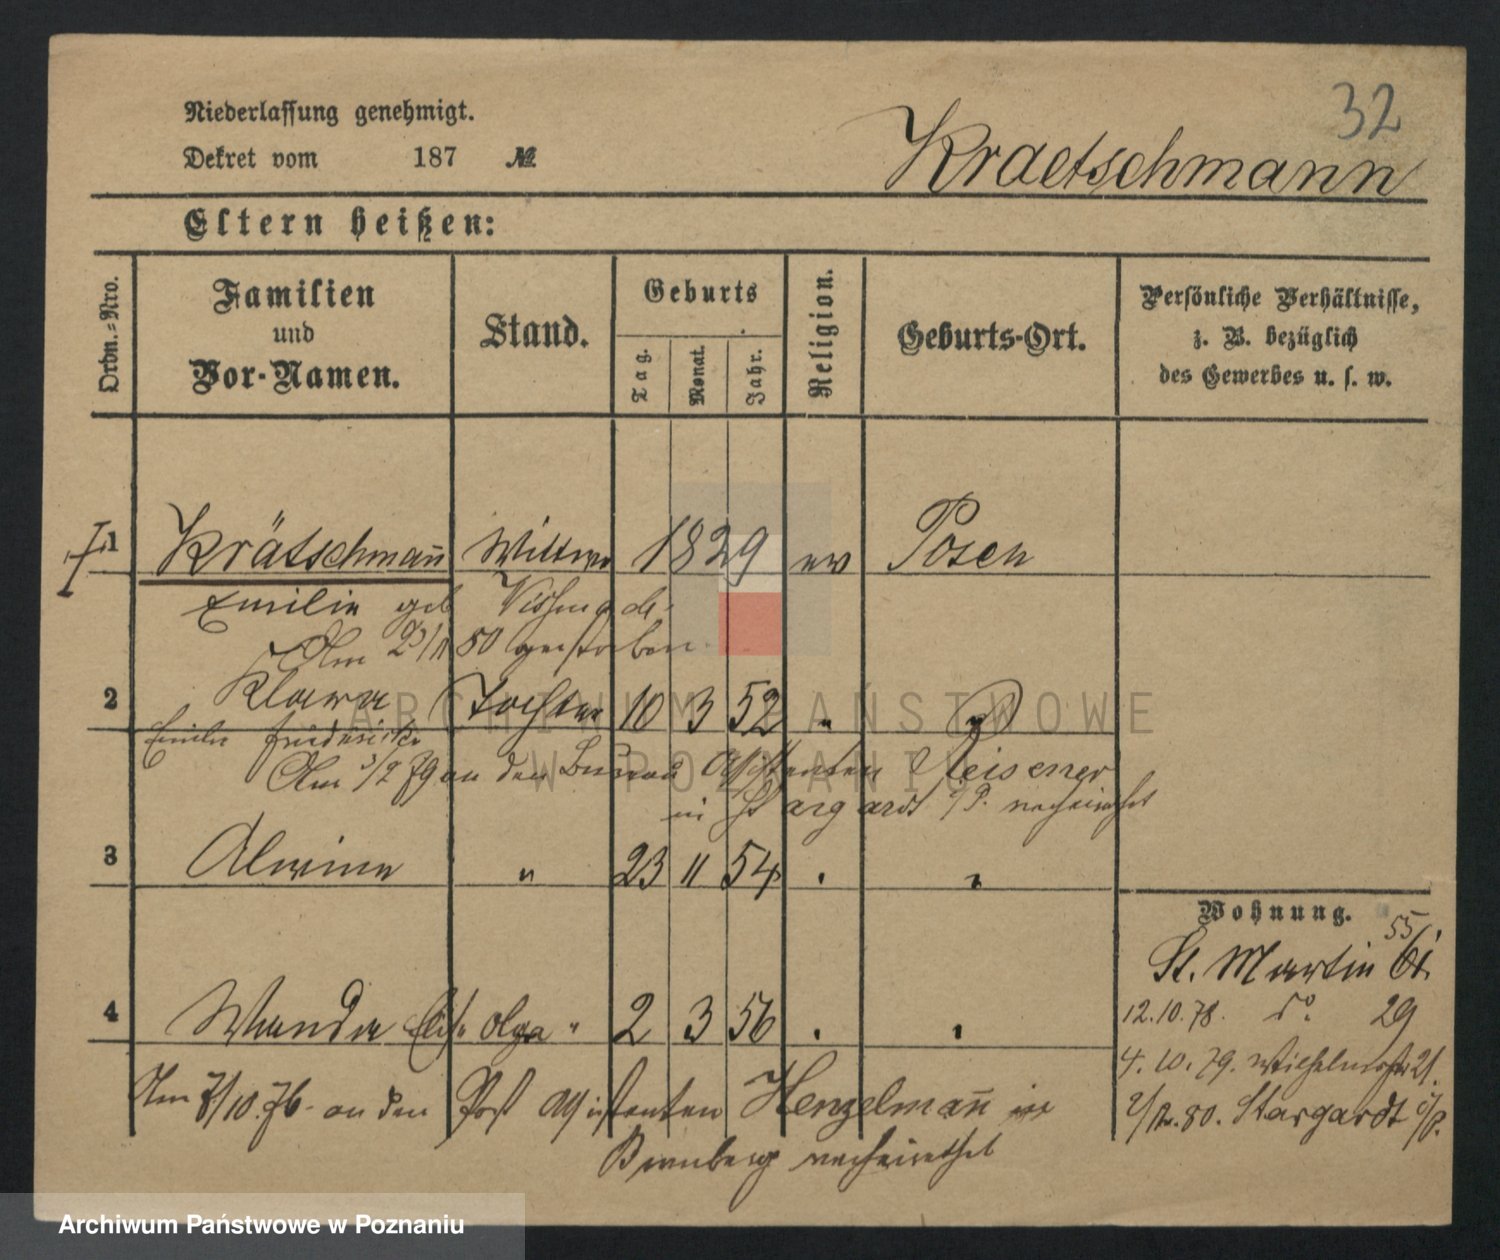 32
Niederlassung genehmigt.
Dekret vom 187 №
Kraetschmann
Eltern heißen:
Ordn.=Nro.
Familien und Vor-Namen.
Stand.
Geburts
Tag. Monat. Jahr.
Religion.
Geburts-Ort.
Persönliche Verhältnisse,
z. B. bezüglich
des Gewerbes u. s. w.
1 Krätschmañ Wittwe 1829 ev Posen
Emilie geb
Am 2/11 80 gestorben
2 Klara Tochter 10 3 52 "
Emilie Friederike
Am 3/2 79 an den Bureau Assistenten Meisener
in Stargardt i/P. verheirathet
3 Alwine " 23 11 54 "
4 Wanda Olga " 2 3 56
Am 7/10.76. an den Post Assistenten Henzelmañ in
Bromberg verheirathet
Wohnung.
55/
St. Martin 61.
12.10.78. do 29
4.10.79. Wilhelmstr 21.
2/12.80. Stargardt i/P.
ARCHIWUM PAŃSTWOWE
W POZNANIU
Archiwum Państwowe w Poznaniu